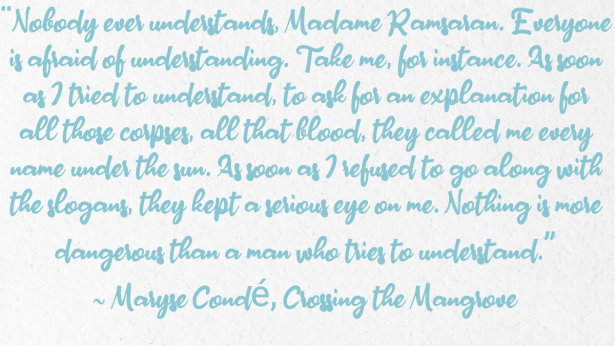 "Nobody ever understands, Madame Ramsaran. Everyone
is afraid of understanding. Take me, for instance. As soon
as I tried to understand, to ask for an explanation for
all those corpses, all that blood, they called me every
name under the sun. As soon as I refused to go along with
the slogans, they kept a serious eye on me. Nothing is more
dangerous than a man who tries to understand."
~ Maryse Condé, Crossing the Mangrove